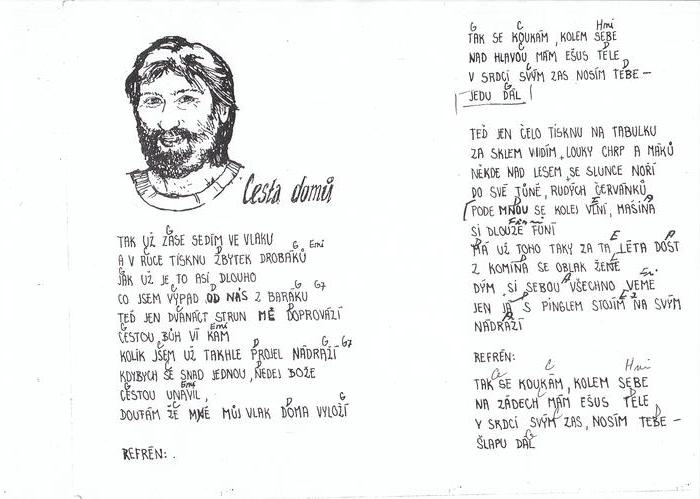 Cesta domů
G
TAK UŽ ZASE SEDÍM VE VLAKU
G Emi
A V RUCE TÍSKNU ZBYTEK DROBÁKŮ
JAK UŽ JE TO ASI DLOUHO
C D G G7
CO JSEM VÝPAD OD NÁS Z BARÁKU
TEĎ JEN DVANÁCT STRUN MĚ DOPROVÁZÍ
G Emi
CESTOU BŮH VÍ KAM
C D G G7
KOLIK JSEM UŽ TAKHLE PROJEL NÁDRAŽÍ
C D
KDYBYCH SE SNAD JEDNOU, NEDEJ BOŽE
G Emi G
CESTOU UNAVIL,
C D
DOUFÁM ŽE MNE MŮJ VLAK DOMA VYLOŽÍ
REFRÉN: .
G C Hmi
TAK SE KOUKÁM, KOLEM SEBE
D
NAD HLAVOU MÁM EŠUS TELE
C D
V SRDCI SVÝM ZAS NOSÍM TEBE –
G
JEDU DÁL
TEĎ JEN ČELO TÍSKNU NA TABULKU
ZA SKLEM VIDÍM, LOUKY CHRP A MÁKŮ
NĚKDE NAD LESEM SE SLUNCE NOŘÍ
DO SVÉ TŮNĚ, RUDÝCH ČERVÁNKŮ
E A
PODE MNOU SE KOLEJ VLNÍ, MAŠINA
SI DLOUZE FUNÍ
E A
MÁ UŽ TOHO TAKY ZA TA LÉTA DOST
Z KOMÍNA SE OBLAK ŽENE
DÝM SI SEBOU VŠECHNO VEME
JEN JÁ S PINGLEM STOJÍM NA SVÝM
NÁDRAŽÍ
REFRÉN:
G C Hmi
TAK SE KOUKÁM, KOLEM SEBE
C D
NA ZÁDECH MÁM EŠUS TELE
C D
V SRDCI SVÝM ZAS, NOSÍM TEBE –
G
ŠLAPU DÁL